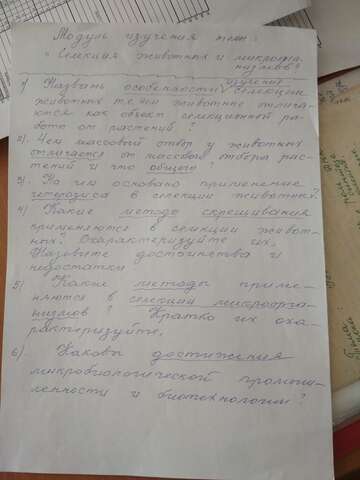 Модуль изучения тем:
"Селекция животных и микроорга-
низмов"
1) Назвать особенности изучения селекции
животных т.е. чем животные отлича-
ются как объект селекционной ра-
боты от растений?
2) Чем массовый отбор у животных
отличается от массового отбора рас-
тений и что общего?
3) На чем основано применение
гетерозиса в селекции животных?
4) Какие методы скрещивания
применяются в селекции живот-
ных? Охарактеризуйте их,
Назовите достоинства и
недостатки
5) Какие методы приме-
няются в селекции микроорга-
низмов? Кратко их оха-
рактеризуйте.
6) Каковы достижения
микробиологической промыш-
ленности и биотехнологии?